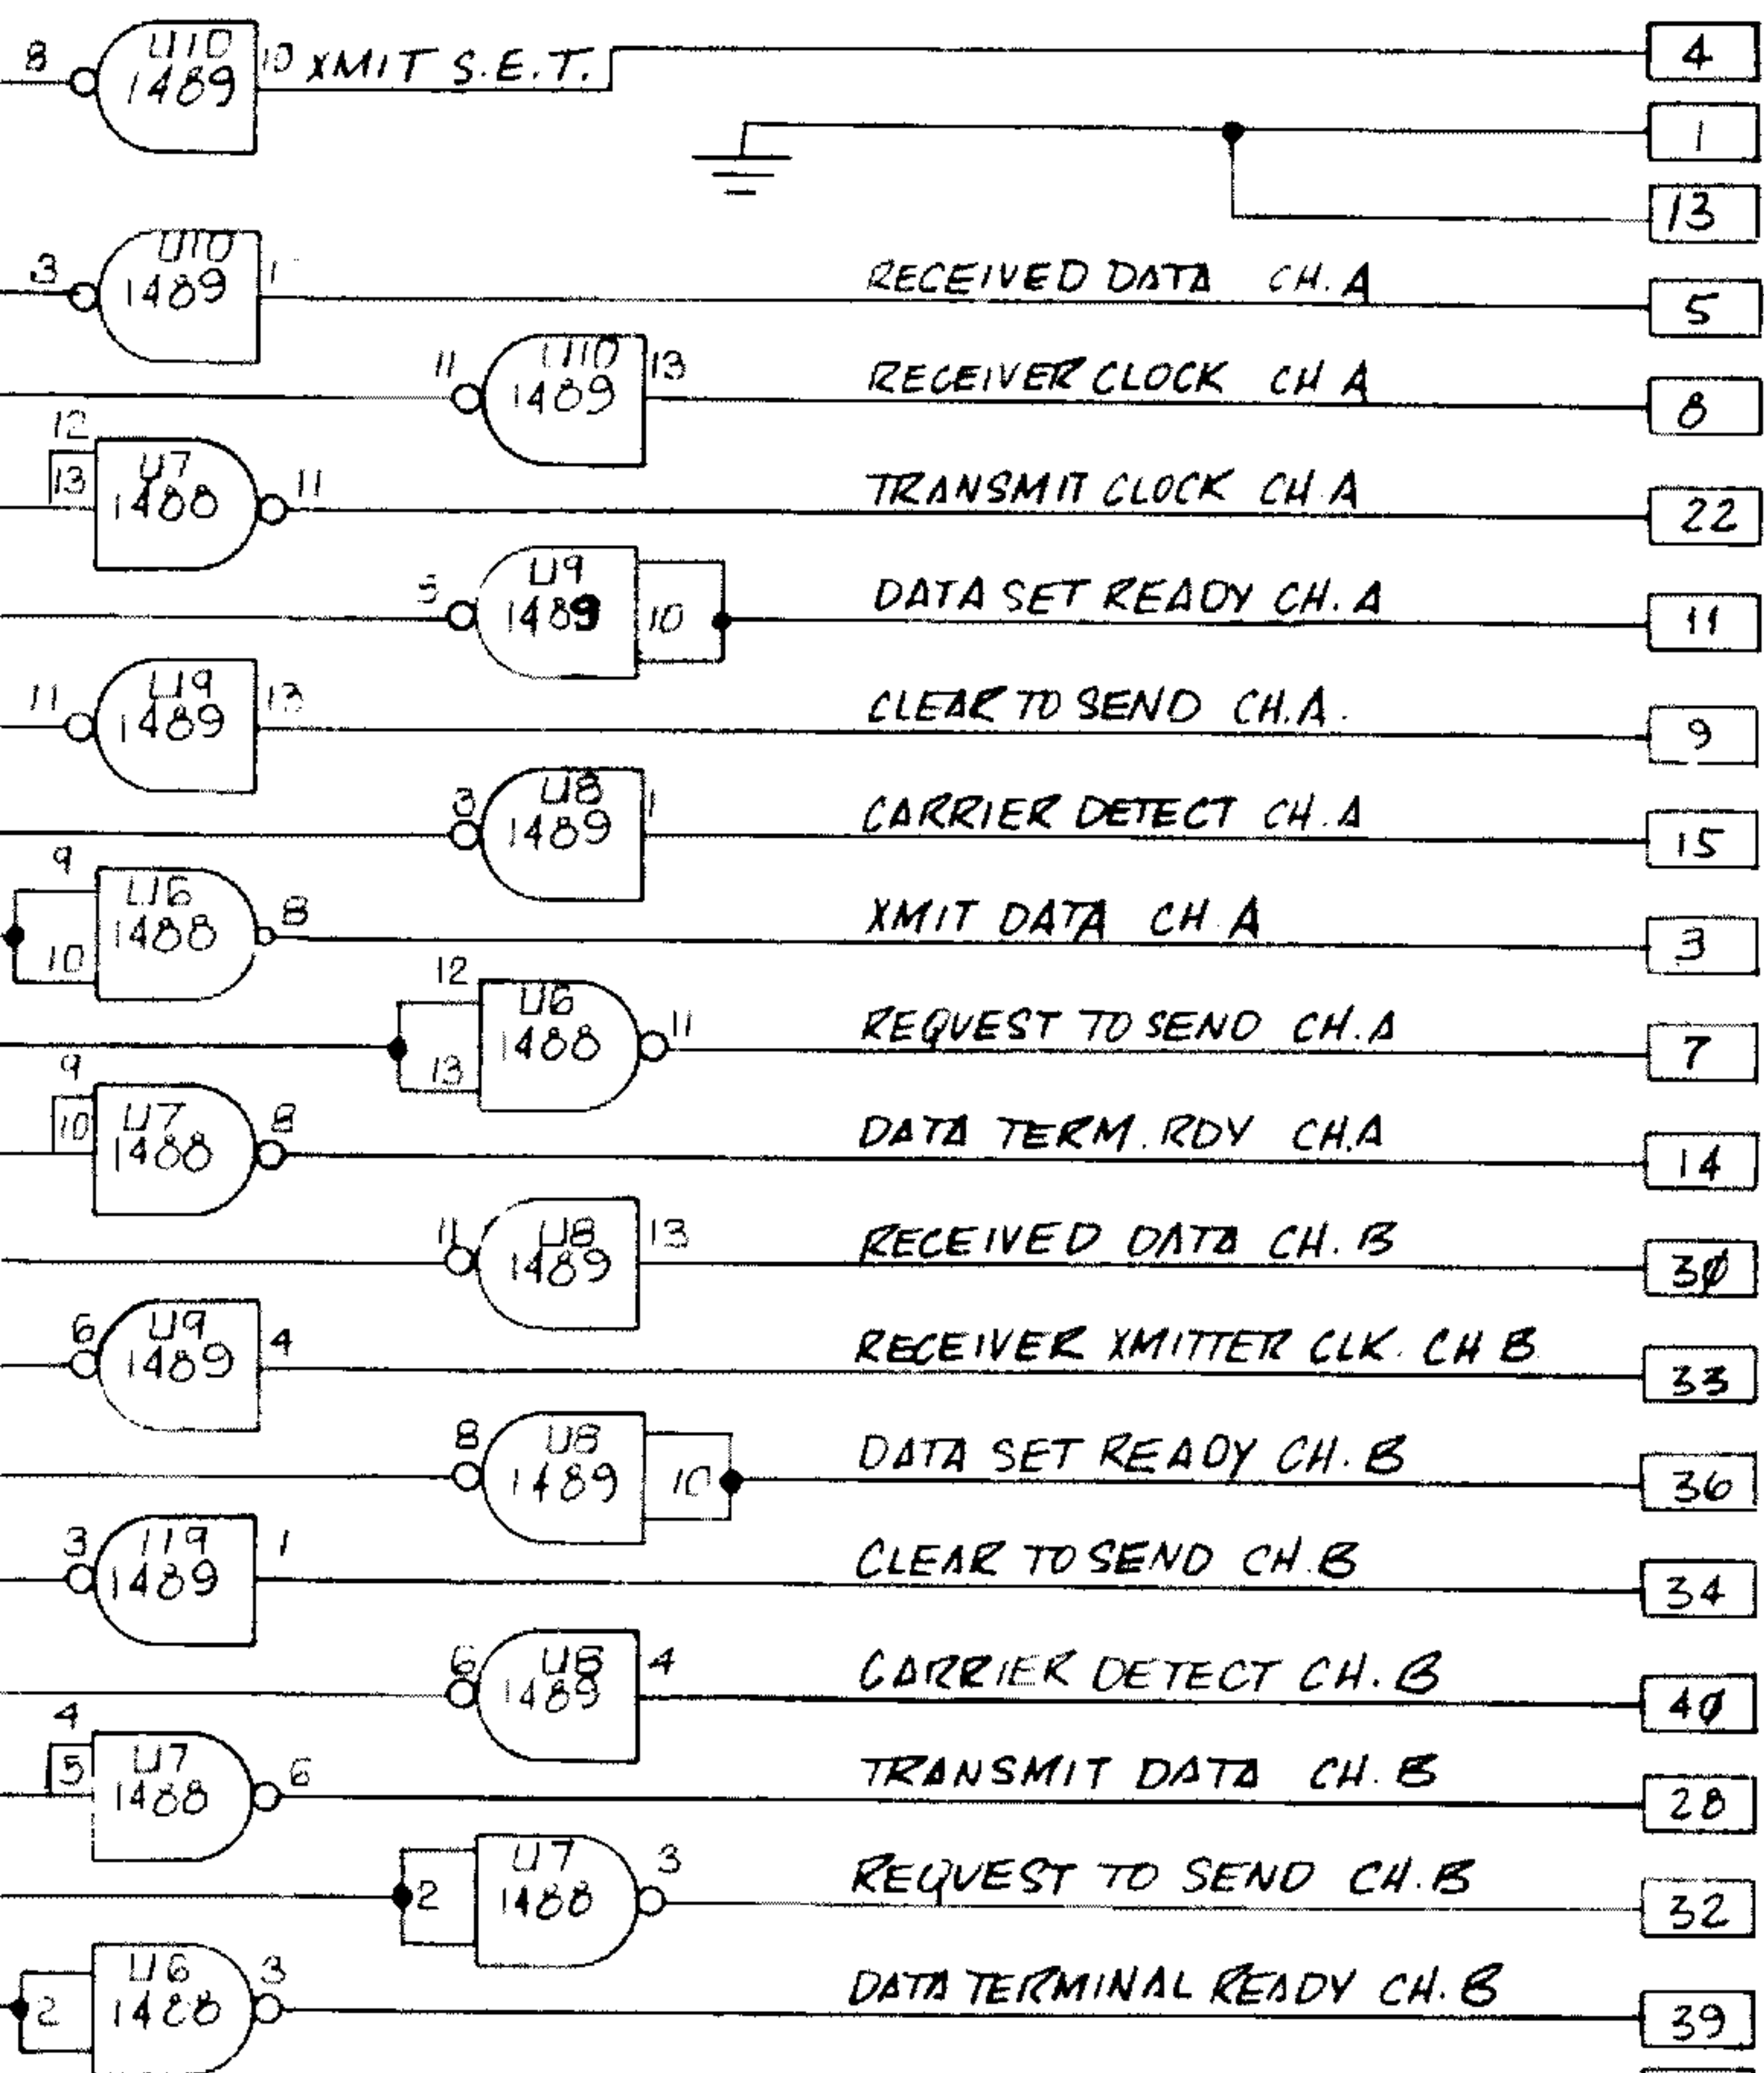 8 U10 1489 10 XMIT S.E.T. 4
1
13
3 U10 1489 1 RECEIVED DATA CH. A 5
11 U10 1489 13 RECEIVER CLOCK CH A 8
12 13 U7 1488 11 TRANSMIT CLOCK CH A 22
U9 1489 10 DATA SET READY CH. A 11
11 U9 1489 13 CLEAR TO SEND CH.A. 9
3 U8 1489 1 CARRIER DETECT CH.A 15
9 10 U6 1488 8 XMIT DATA CH A 3
12 13 U6 1488 11 REQUEST TO SEND CH.A 7
9 10 U7 1488 8 DATA TERM. RDY CH.A 14
11 U8 1489 13 RECEIVED DATA CH. B 30
6 U9 1489 4 RECEIVER XMITTER CLK. CH B 33
8 U8 1489 10 DATA SET READY CH. B 36
3 U9 1489 1 CLEAR TO SEND CH.B 34
6 U8 1489 4 CARRIER DETECT CH. B 40
4 5 U7 1488 6 TRANSMIT DATA CH. B 28
2 U7 1488 3 REQUEST TO SEND CH.B 32
2 U6 1488 3 DATA TERMINAL READY CH. B 39